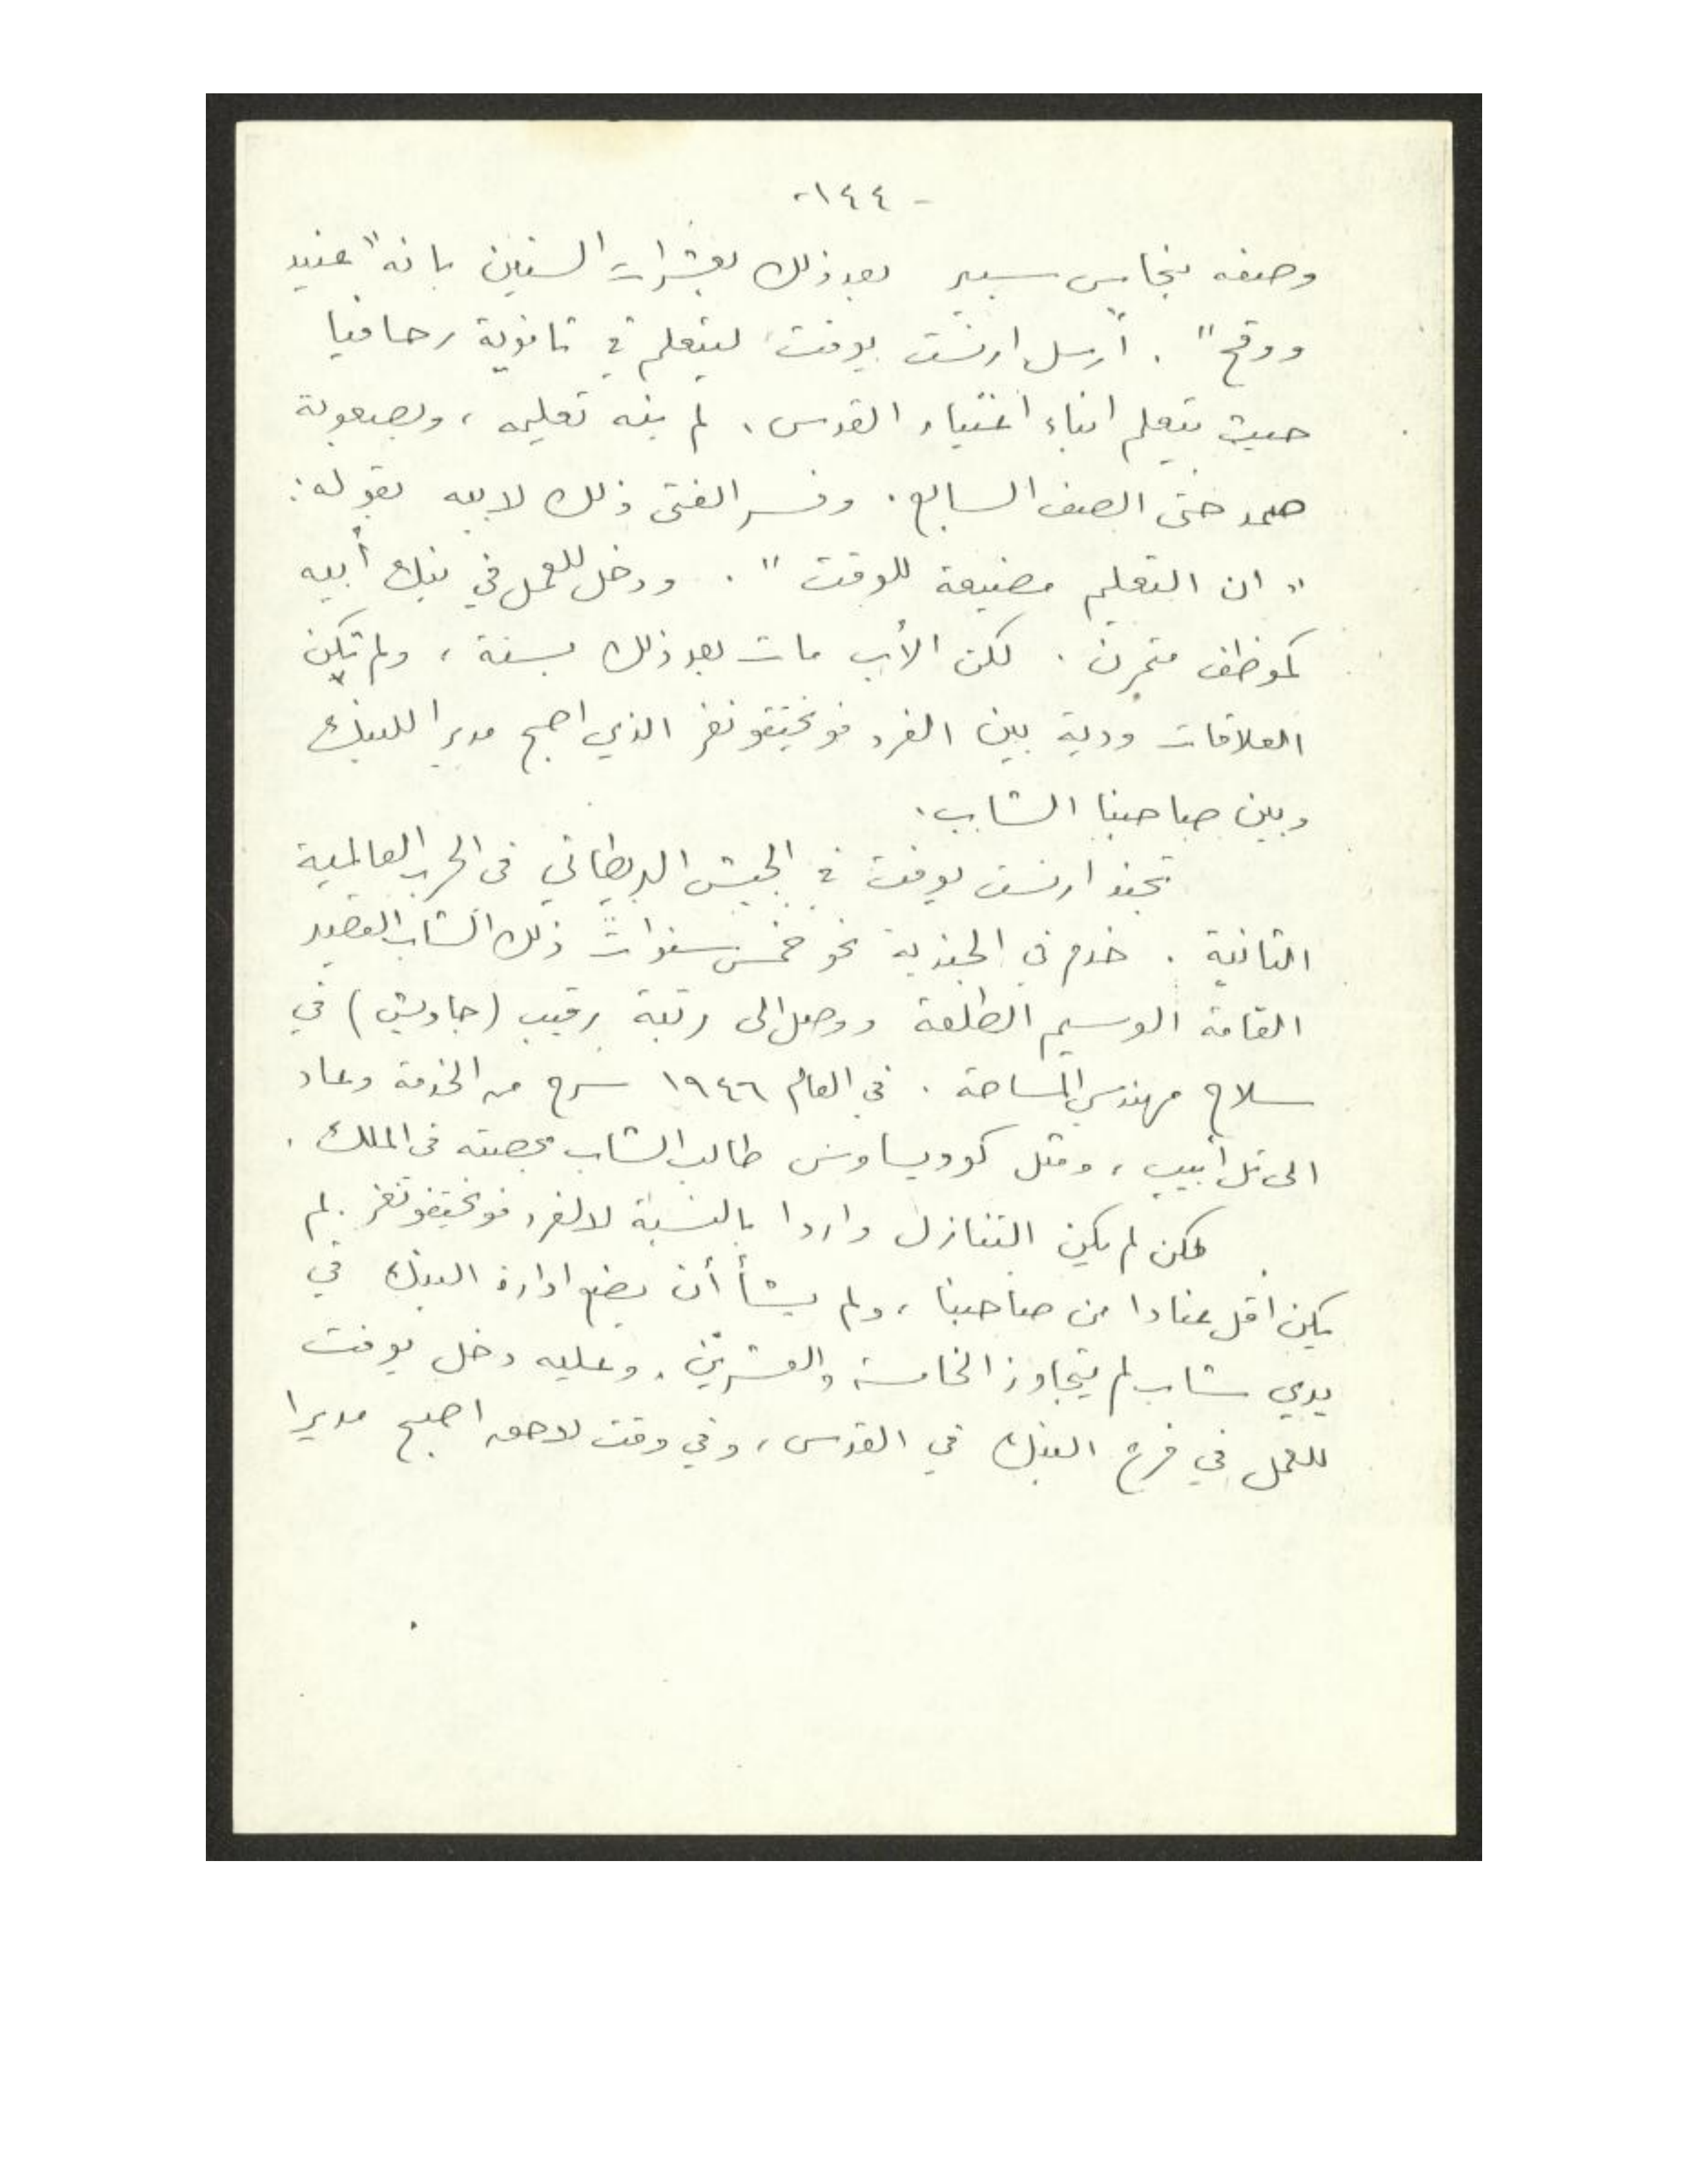 -١٤٤-
وصفه بنحاس سبير بعد ذلك بعشرات السنين بانه "عنيد
ووقح". أرسل ارنست يوفت ليتعلم في ثانوية رحافيا
حيث يتعلم ابناء اغنياء القدس. لم ينه تعليمه، وبصعوبة
صمد حتى الصف السابع. وفسر الفتى ذلك لابيه بقوله:
"ان التعليم مضيعة للوقت". ودخل للعمل في بنك أبيه
كموظف متمرن. لكن الأب مات بعد ذلك بسنة، ولم تكن
العلاقات ودية بين الفرد فويختفونغر الذي اصبح مديرا للبنك
وبين صاحبنا الشاب.
تجند ارنست يوفت في الجيش البريطاني في الحرب العالمية
الثانية. خدم في الجندية نحو خمس سنوات ذلك الشاب القصير
القامة الوسيم الطلعة ووصل الى رتبة رقيب (جاويش) في
سلاح مهندسي المساحة. في العام ١٩٤٦ سرح من الخدمة وعاد
الى تل أبيب، ومثل كوديساوس طالب الشاب بحصته في الملك.
لكن لم يكن التنازل واردا بالنسبة لالفرد فويختفونغر. لم
يكن اقل عنادا من صاحبنا، ولم يشأ أن يضع ادارة البنك في
يدي شاب لم يتجاوز الخامسة والعشرين. وعليه دخل يوفت
للعمل في فرع البنك في القدس، وفي وقت لاحق اصبح مديرا